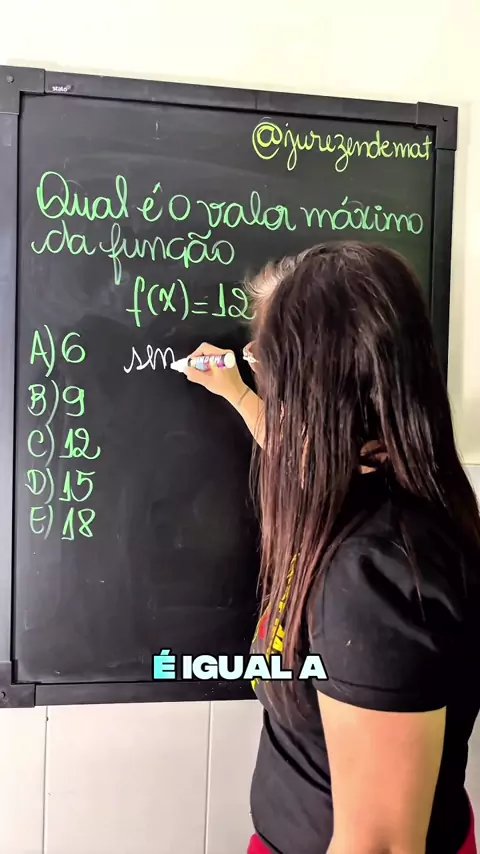 stalo
@jurezendemat
Qual é o valor máximo
da função
f(x)=12
A) 6
sen
B) 9
C) 12
D) 15
E) 18
É IGUAL A